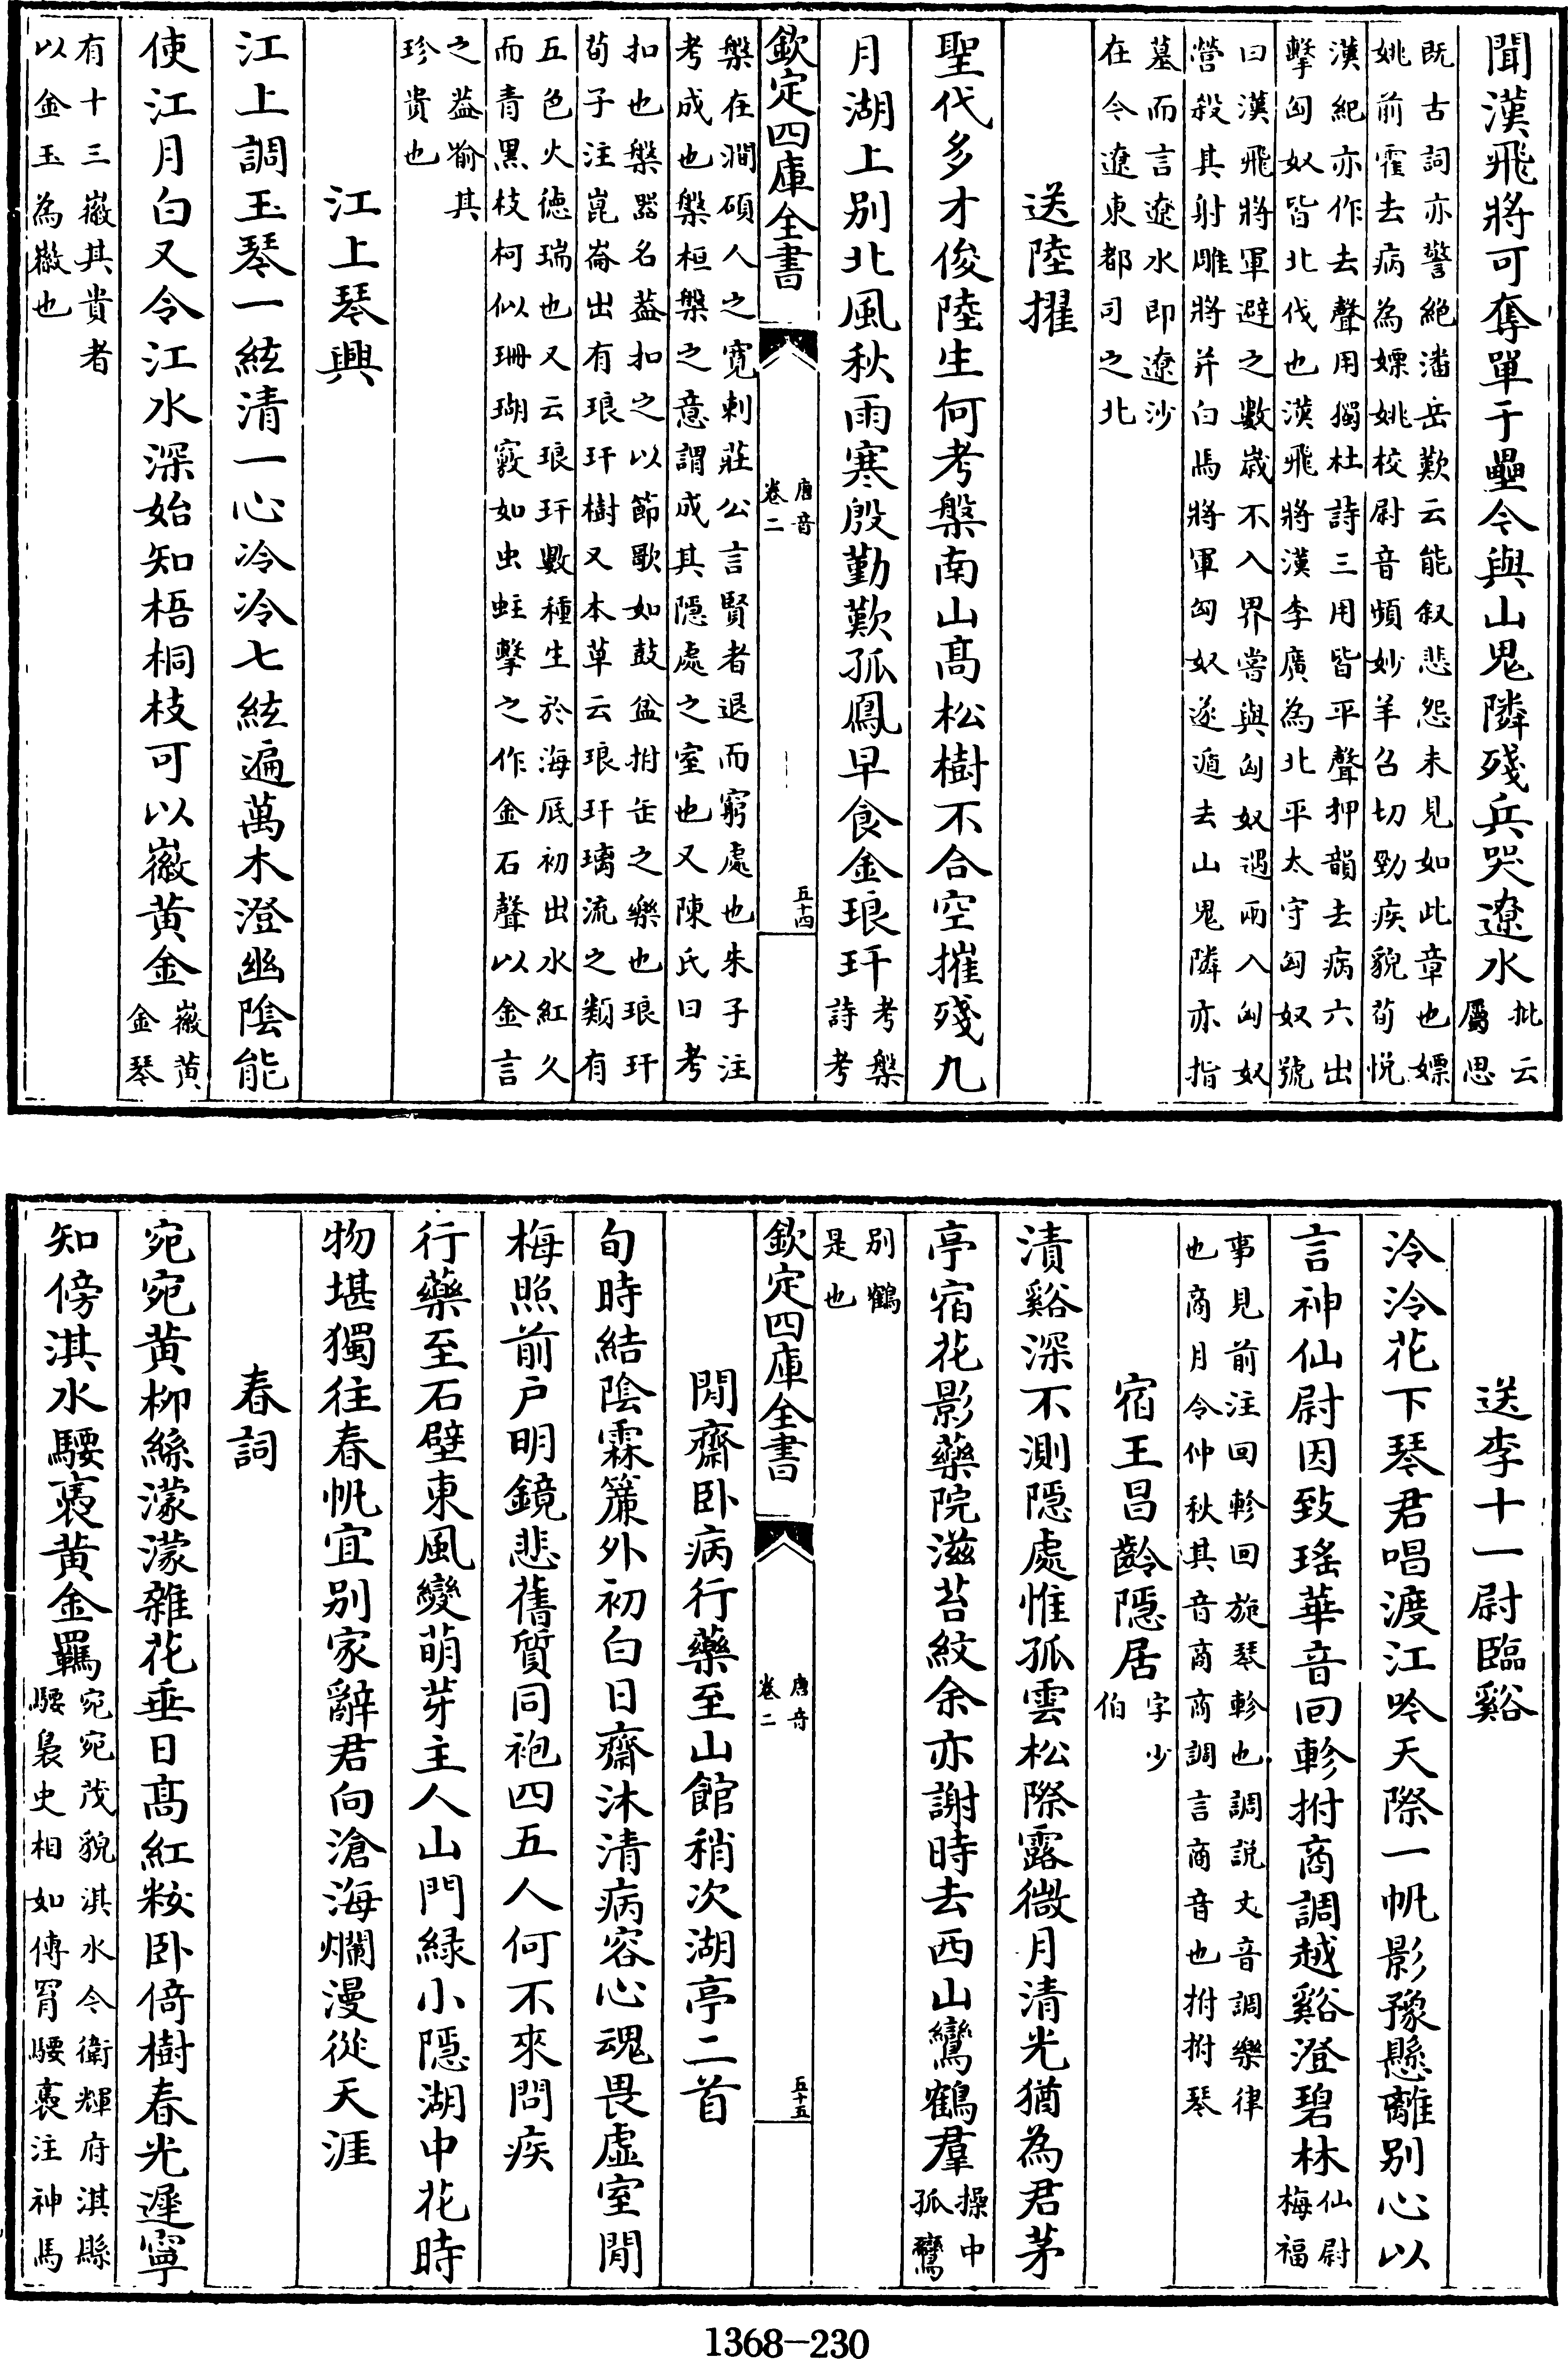 聞漢飛將可奪單于壘令與山鬼隣殘兵哭遼水批云
屬思
既古詞亦警絶潘岳歎云能叙悲怨未見如此章也嫖
姚前霍去病為嫖姚校尉音頻妙羊召切勁疾貌荀悅
漢紀亦作去聲用獨杜詩三用皆平聲押韻去病六出
擊匈奴皆北伐也漢飛將漢李廣為北平太守匈奴號
曰漢飛將軍避之數歲不入界嘗與匈奴遇兩入匈奴
營殺其射雕將并白馬將軍匈奴遂遁去山鬼隣亦指
墓而言遼水即遼沙
在今遼東都司之北
送陸擢
聖代多才俊陸生何考槃南山髙松樹不合空摧殘九
月湖上别北風秋雨寒殷勤歎孤鳳早食金琅玕考槃
詩考
欽定四庫全書
唐音
卷二
五十四
槃在澗碩人之寛刺莊公言賢者退而窮處也朱子注
考成也槃桓槃之意謂成其隱處之室也又陳氏曰考
扣也槃器名葢扣之以節歌如鼓盆拊缶之樂也琅玕
荀子注崑崙出有琅玕樹又本草云琅玕璃流之類有
五色火徳瑞也又云琅玕數種生於海底初出水紅久
而青黑枝柯似珊瑚竅如虫蛀擊之作金石聲以金言
之葢喻其
珍貴也
江上琴興
江上調玉琴一絃清一心泠泠七絃遍萬木澄幽隂能
使江月白又令江水深始知梧桐枝可以徽黄金徽黄
金琴
有十三徽其貴者
以金玉為徽也
送李十一尉臨谿
泠泠花下琴君唱渡江吟天際一帆影豫懸離别心以
言神仙尉因致瑤華音回軫拊商調越谿澄碧林仙尉
梅福
事見前注回軫回施琴軫也調説文音調樂律
也商月令仲秋其音商商調言商音也拊拊琴
宿王昌齡隱居字少
伯
漬谿深不測隱處惟孤雲松際露微月清光猶為君茅
亭宿花影藥院滋苔紋余亦謝時去西山鸞鶴羣操中
孤鸞
别鶴
是也
欽定四庫全書
唐音
卷二
五十五
閒齋卧病行藥至山館稍次湖亭二首
旬時結隂霖簾外初白日齋沐清病容心魂畏虛室閒
梅照前户明鏡悲舊質同袍四五人何不來問疾
行藥至石壁東風變萌芽主人山門緑小隱湖中花時
物堪獨往春帆宜别家辭君向滄海爛漫從天涯
春詞
宛宛黄柳絲濛濛雜花垂日髙紅粧卧倚樹春光遲寧
知傍淇水騕褭黄金羈宛宛茂貌淇水今衛輝府淇縣
騕褭史相如傳罥騕褭注神馬
1368-230